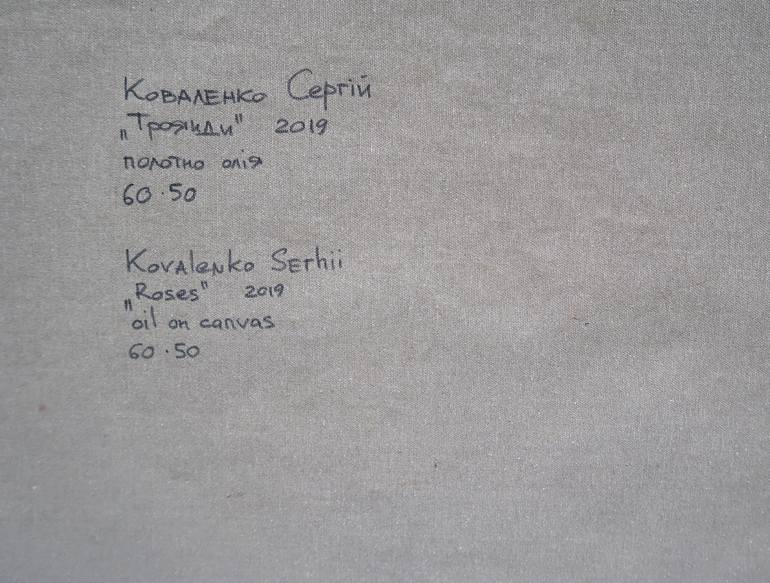 Коваленко Сергій
„Троянди" 2019
полотно олія
60·50
Kovalenko Serhii
„Roses" 2019
oil on canvas
60·50